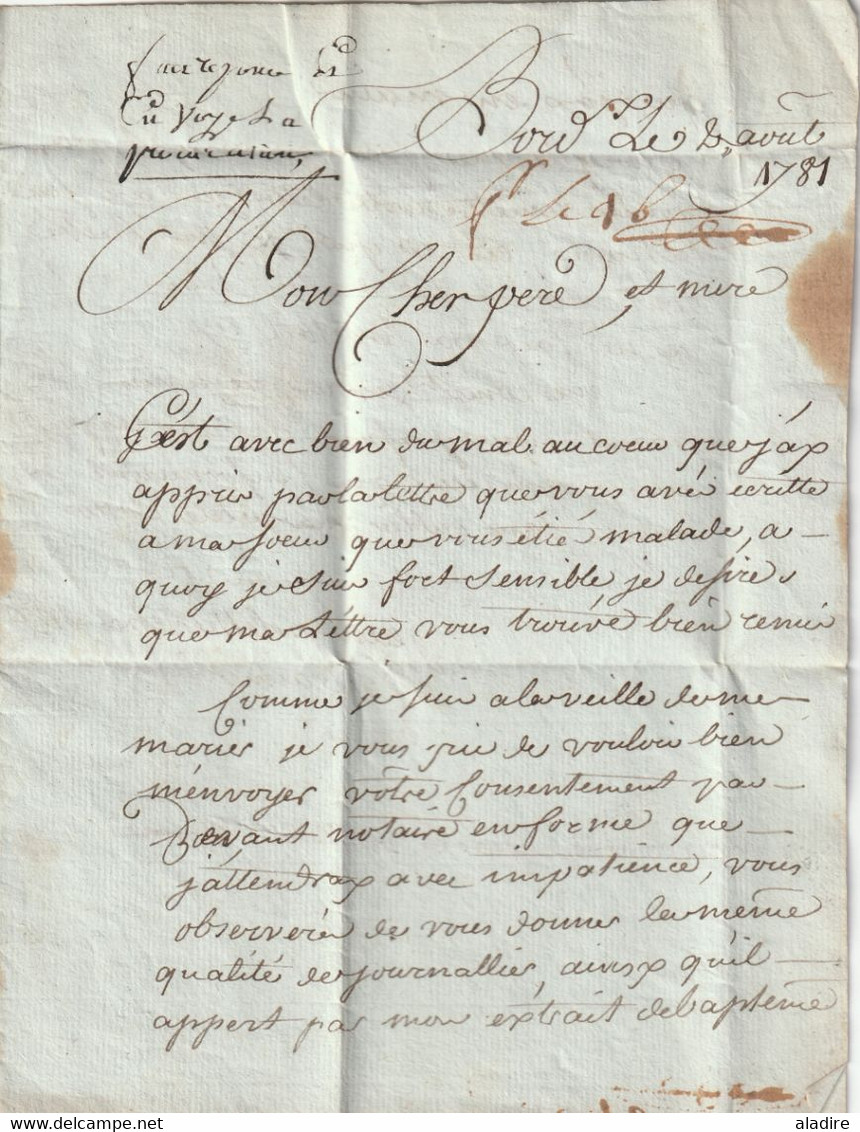 Bord.x Le 2 août
1781
Mon Cher pere et mere
C'est avec bien du mal au coeur que j'ax
appris par la lettre que vous avé ecritte
a ma soeur que vous étié malade, a -
quoy je suis fort sensible, je desire
que ma Léttre vous trouve bien remis
Comme je suis a la veille de me -
marier je vous prie de vouloir bien
m'énvoyer vôtre Consentement par -
Devant notaire en forme que -
j'attendrax avec impatience, vous
observeré de vous donner la même
qualité de journallier, ainsx qu'il -
appert par mon éxtrait de baptême
© aladire